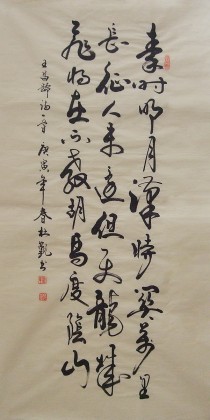 秦时明月汉时关万里
长征人未还但使龙城
飞将在不教胡马度阴山
王昌龄诗一首 庚寅年春杜凯书